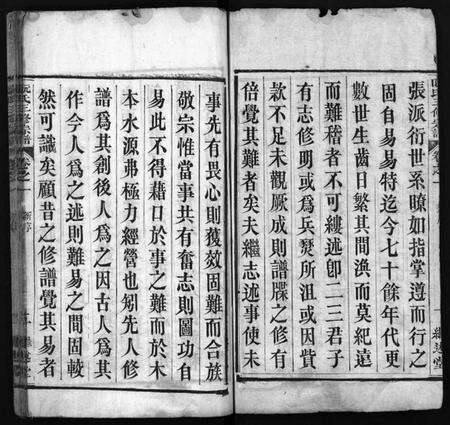 張派衍世系暸如指掌遵而行之
固自易易特迄今七十餘年代更
數世生齒日繁其間渙而莫紀遠
而難稽者不可縷述卽二三君子
有志修明或爲兵燹所沮或因貲
款不足未觀厥成則譜牒之修有
倍覺其難者矣夫繼志述事使未
事先有畏心則獲效固難而合族
敬宗惟當事共有奮志則圖功自
易此不得藉口於事之難而於木
本水源弗極力經營也矧先人修
譜爲其創後人爲之因古人爲其
作今人爲之述則難易之間固較
然可識矣顧昔之修譜覺其易者